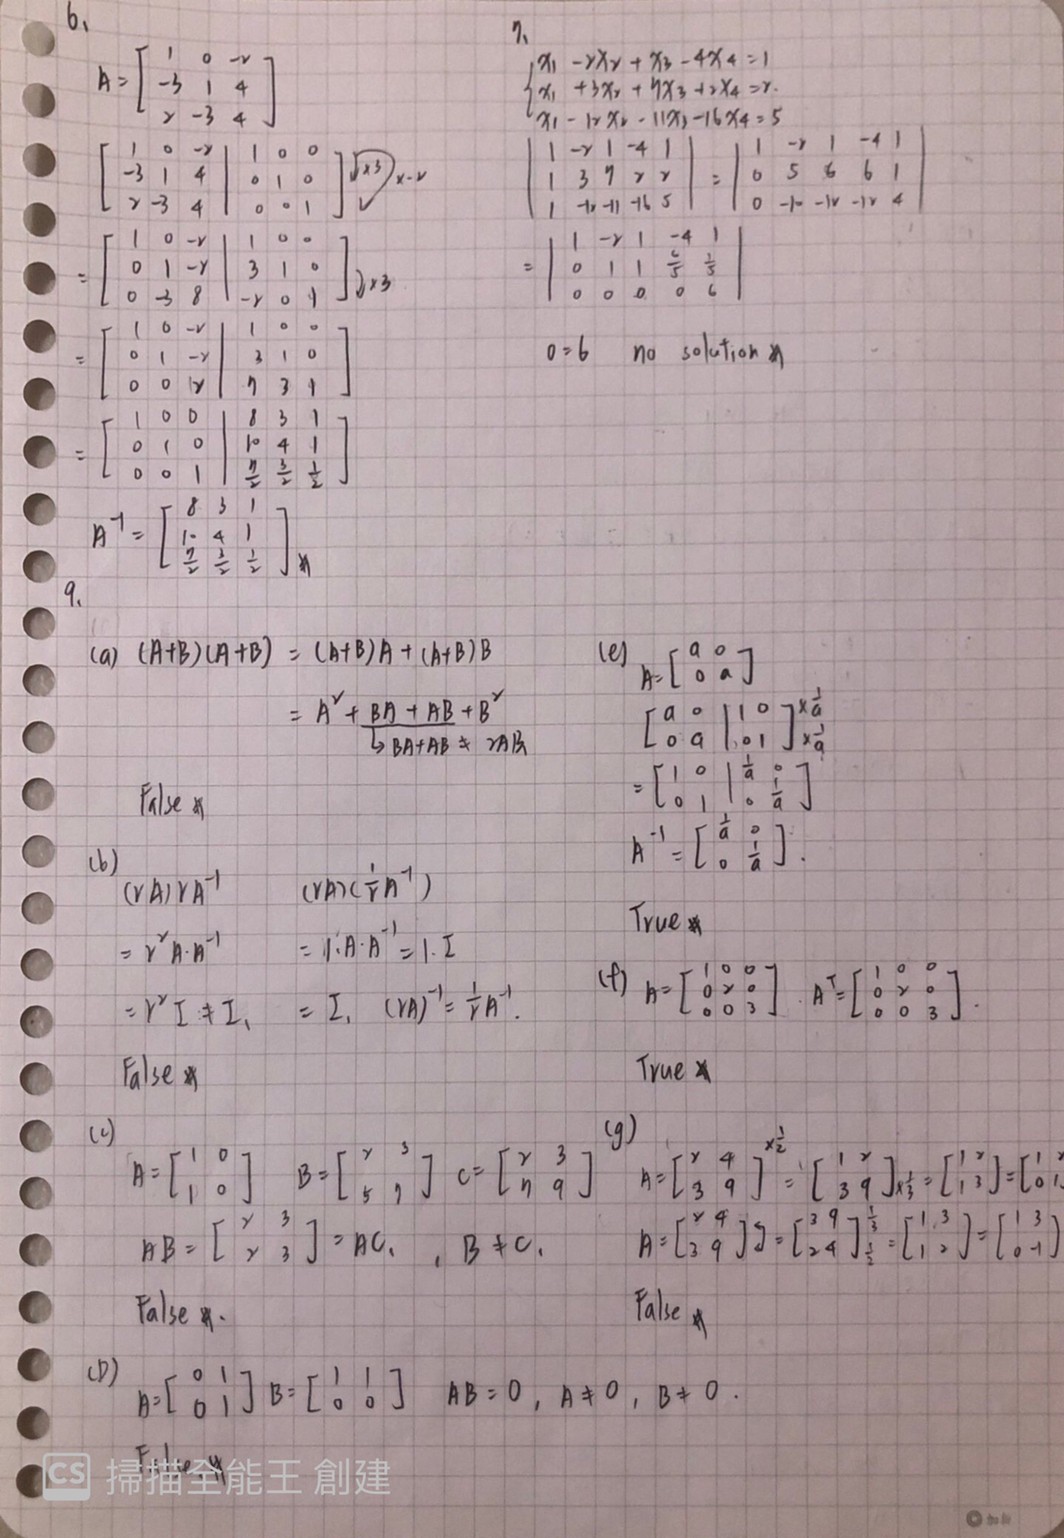 6.
A = [ 1 0 -2 ; -3 1 4 ; 2 -3 4 ]
[ 1 0 -2 | 1 0 0 ; -3 1 4 | 0 1 0 ; 2 -3 4 | 0 0 1 ] ×3 ×-2
= [ 1 0 -2 | 1 0 0 ; 0 1 -2 | 3 1 0 ; 0 -3 8 | -2 0 1 ] ×3
= [ 1 0 -2 | 1 0 0 ; 0 1 -2 | 3 1 0 ; 0 0 2 | 7 3 1 ]
= [ 1 0 0 | 8 3 1 ; 0 1 0 | 10 4 1 ; 0 0 1 | 7/2 3/2 1/2 ]
A⁻¹ = [ 8 3 1 ; 10 4 1 ; 7/2 3/2 1/2 ]
7.
x1 - 2x2 + x3 - 4x4 = 1
x1 + 3x2 + 7x3 + 2x4 = 2.
x1 - 12x2 - 11x3 - 16x4 = 5
| 1 -2 1 -4 1 ; 1 3 7 2 2 ; 1 -12 -11 -16 5 | = | 1 -2 1 -4 1 ; 0 5 6 6 1 ; 0 -10 -12 -12 4 |
= | 1 -2 1 -4 1 ; 0 1 1 6/5 1/5 ; 0 0 0 0 6 |
0=6 no solution
9.
(a) (A+B)(A+B) = (A+B)A + (A+B)B
= A² + BA + AB + B²
↳ BA+AB ≠ 2AB
False
(b)
(rA)rA⁻¹ (rA)(1/r A⁻¹)
= r²A·A⁻¹ = 1·A·A⁻¹ = 1·I
= r²I ≠ I, = I, (rA)⁻¹ = 1/r A⁻¹.
False
(c)
A = [ 1 0 ; 1 0 ] B = [ 2 3 ; 5 7 ] C = [ 2 3 ; 7 9 ]
AB = [ 2 3 ; 2 3 ] = AC, , B ≠ C.
False.
(D)
A = [ 0 1 ; 0 1 ] B = [ 1 1 ; 0 0 ] AB = 0, A ≠ 0, B ≠ 0.
False
(e)
A = [ a 0 ; 0 a ]
[ a 0 | 1 0 ; 0 a | 0 1 ] ×1/a ×1/a
= [ 1 0 | 1/a 0 ; 0 1 | 0 1/a ]
A⁻¹ = [ 1/a 0 ; 0 1/a ].
True
(f) A = [ 1 0 0 ; 0 2 0 ; 0 0 3 ] . Aᵀ = [ 1 0 0 ; 0 2 0 ; 0 0 3 ].
True
(g)
A = [ 2 4 ; 3 9 ] ×1/2 = [ 1 2 ; 3 9 ] ×1/3 = [ 1 2 ; 1 3 ] = [ 1 2 ; 0 1
A = [ 2 4 ; 3 9 ] = [ 3 9 ; 2 4 ] 1/3 1/2 = [ 1 3 ; 1 2 ] = [ 1 3 ; 0 -1 ]
False
CS 掃描全能王 創建